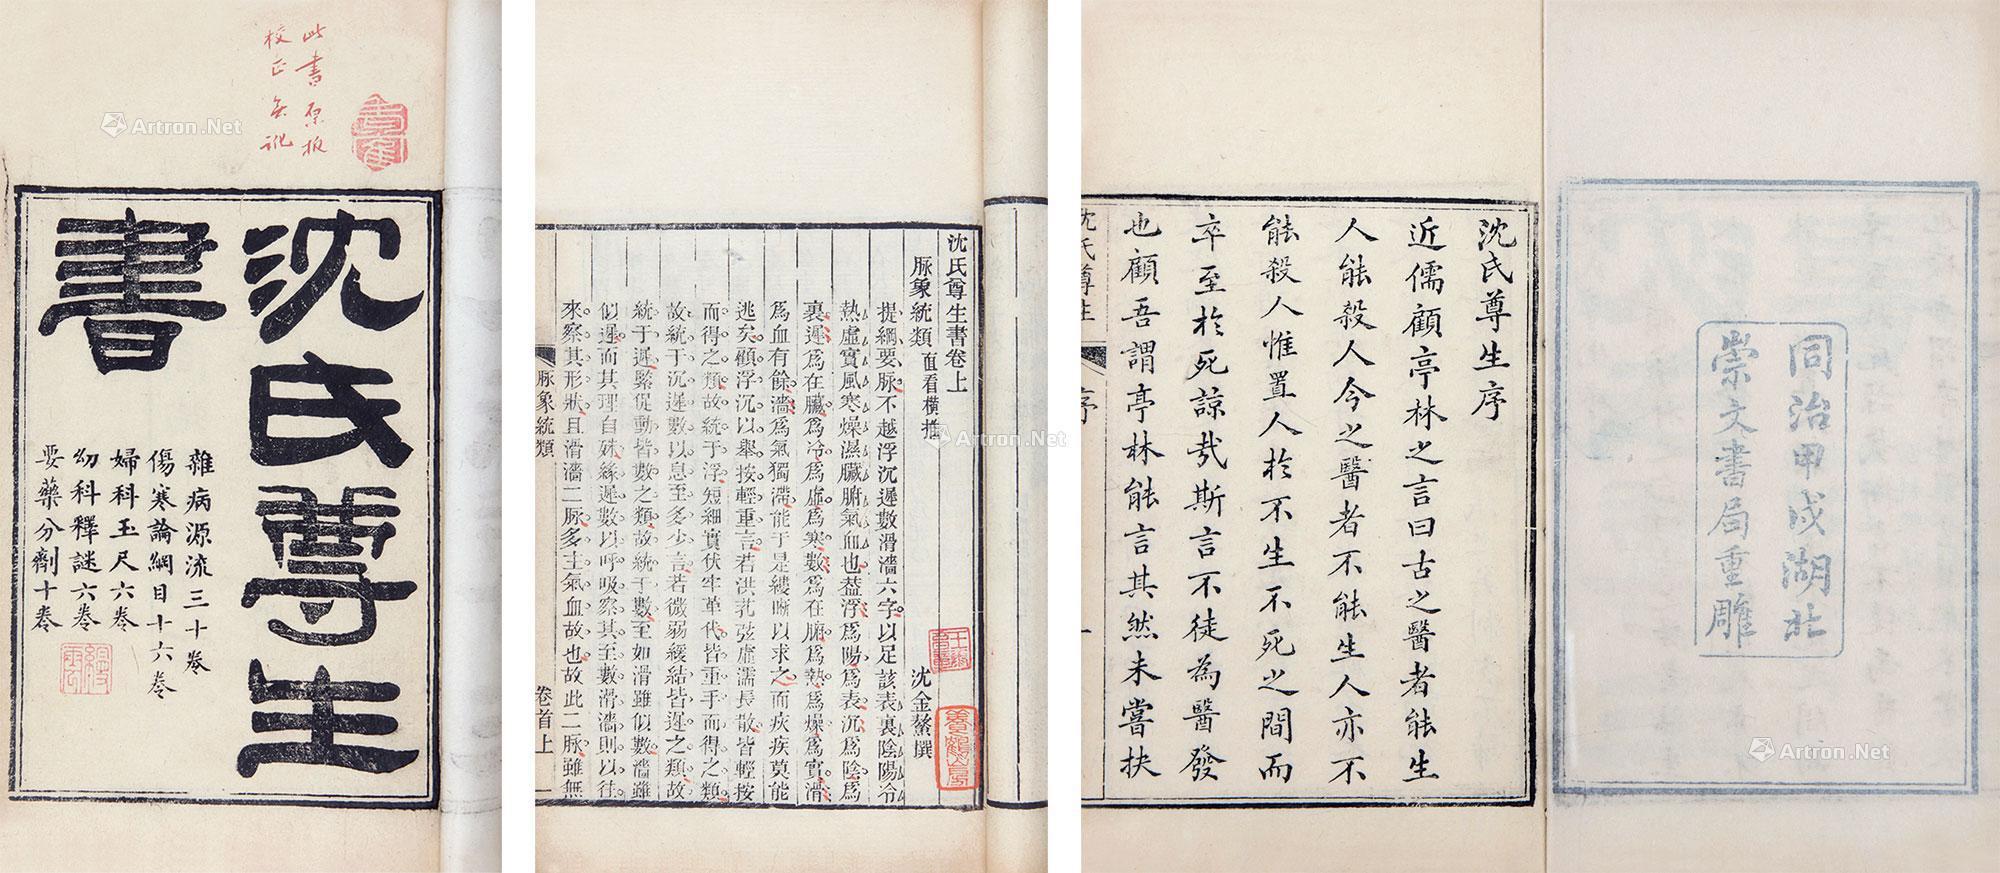 此書原板
校正無訛
沈氏尊生
書
雜病源流三十卷
傷寒論綱目十六卷
婦科玉尺六卷
幼科釋謎六卷
要藥分劑十卷
Artron.Net
沈氏尊生書卷上
脈象統類 直看橫推
沈金鰲撰
提綱要脈不越浮沉遲數滑濇六字以足該表裏陰陽冷
熱虛實風寒燥濕臟腑氣血也葢浮爲陽爲表沉爲陰爲
裏遲爲在臟爲冷爲虛爲寒數爲在腑爲熱爲燥爲實滑
爲血有餘濇爲氣獨滯能于是縷晰以求之而疾疾莫能
逃矣顧浮沉以舉按輕重言若洪芤弦虛濡長散皆輕按
而得之類故統于浮短細實伏牢革代皆重手而得之類
故統于沉遲數以息至多少言若微弱緩結皆遲之類故
統于遲緊促動皆數之類故統于數至如滑雖似數濇雖
似遲而其理自殊緣遲數以呼吸察其至數滑濇則以往
來察其形狀且滑濇二脈多主氣血故也故此二脈雖無
脈象統類
卷首上
一
Artron.Net
沈氏尊生序
近儒顧亭林之言曰古之醫者能生
人能殺人今之醫者不能生人亦不
能殺人惟置人於不生不死之間而
卒至於死諒哉斯言不徒為醫發
也顧吾謂亭林能言其然未嘗抉
沈氏尊生
序
一
同治甲戌湖北
崇文書局重雕
Artron.Net